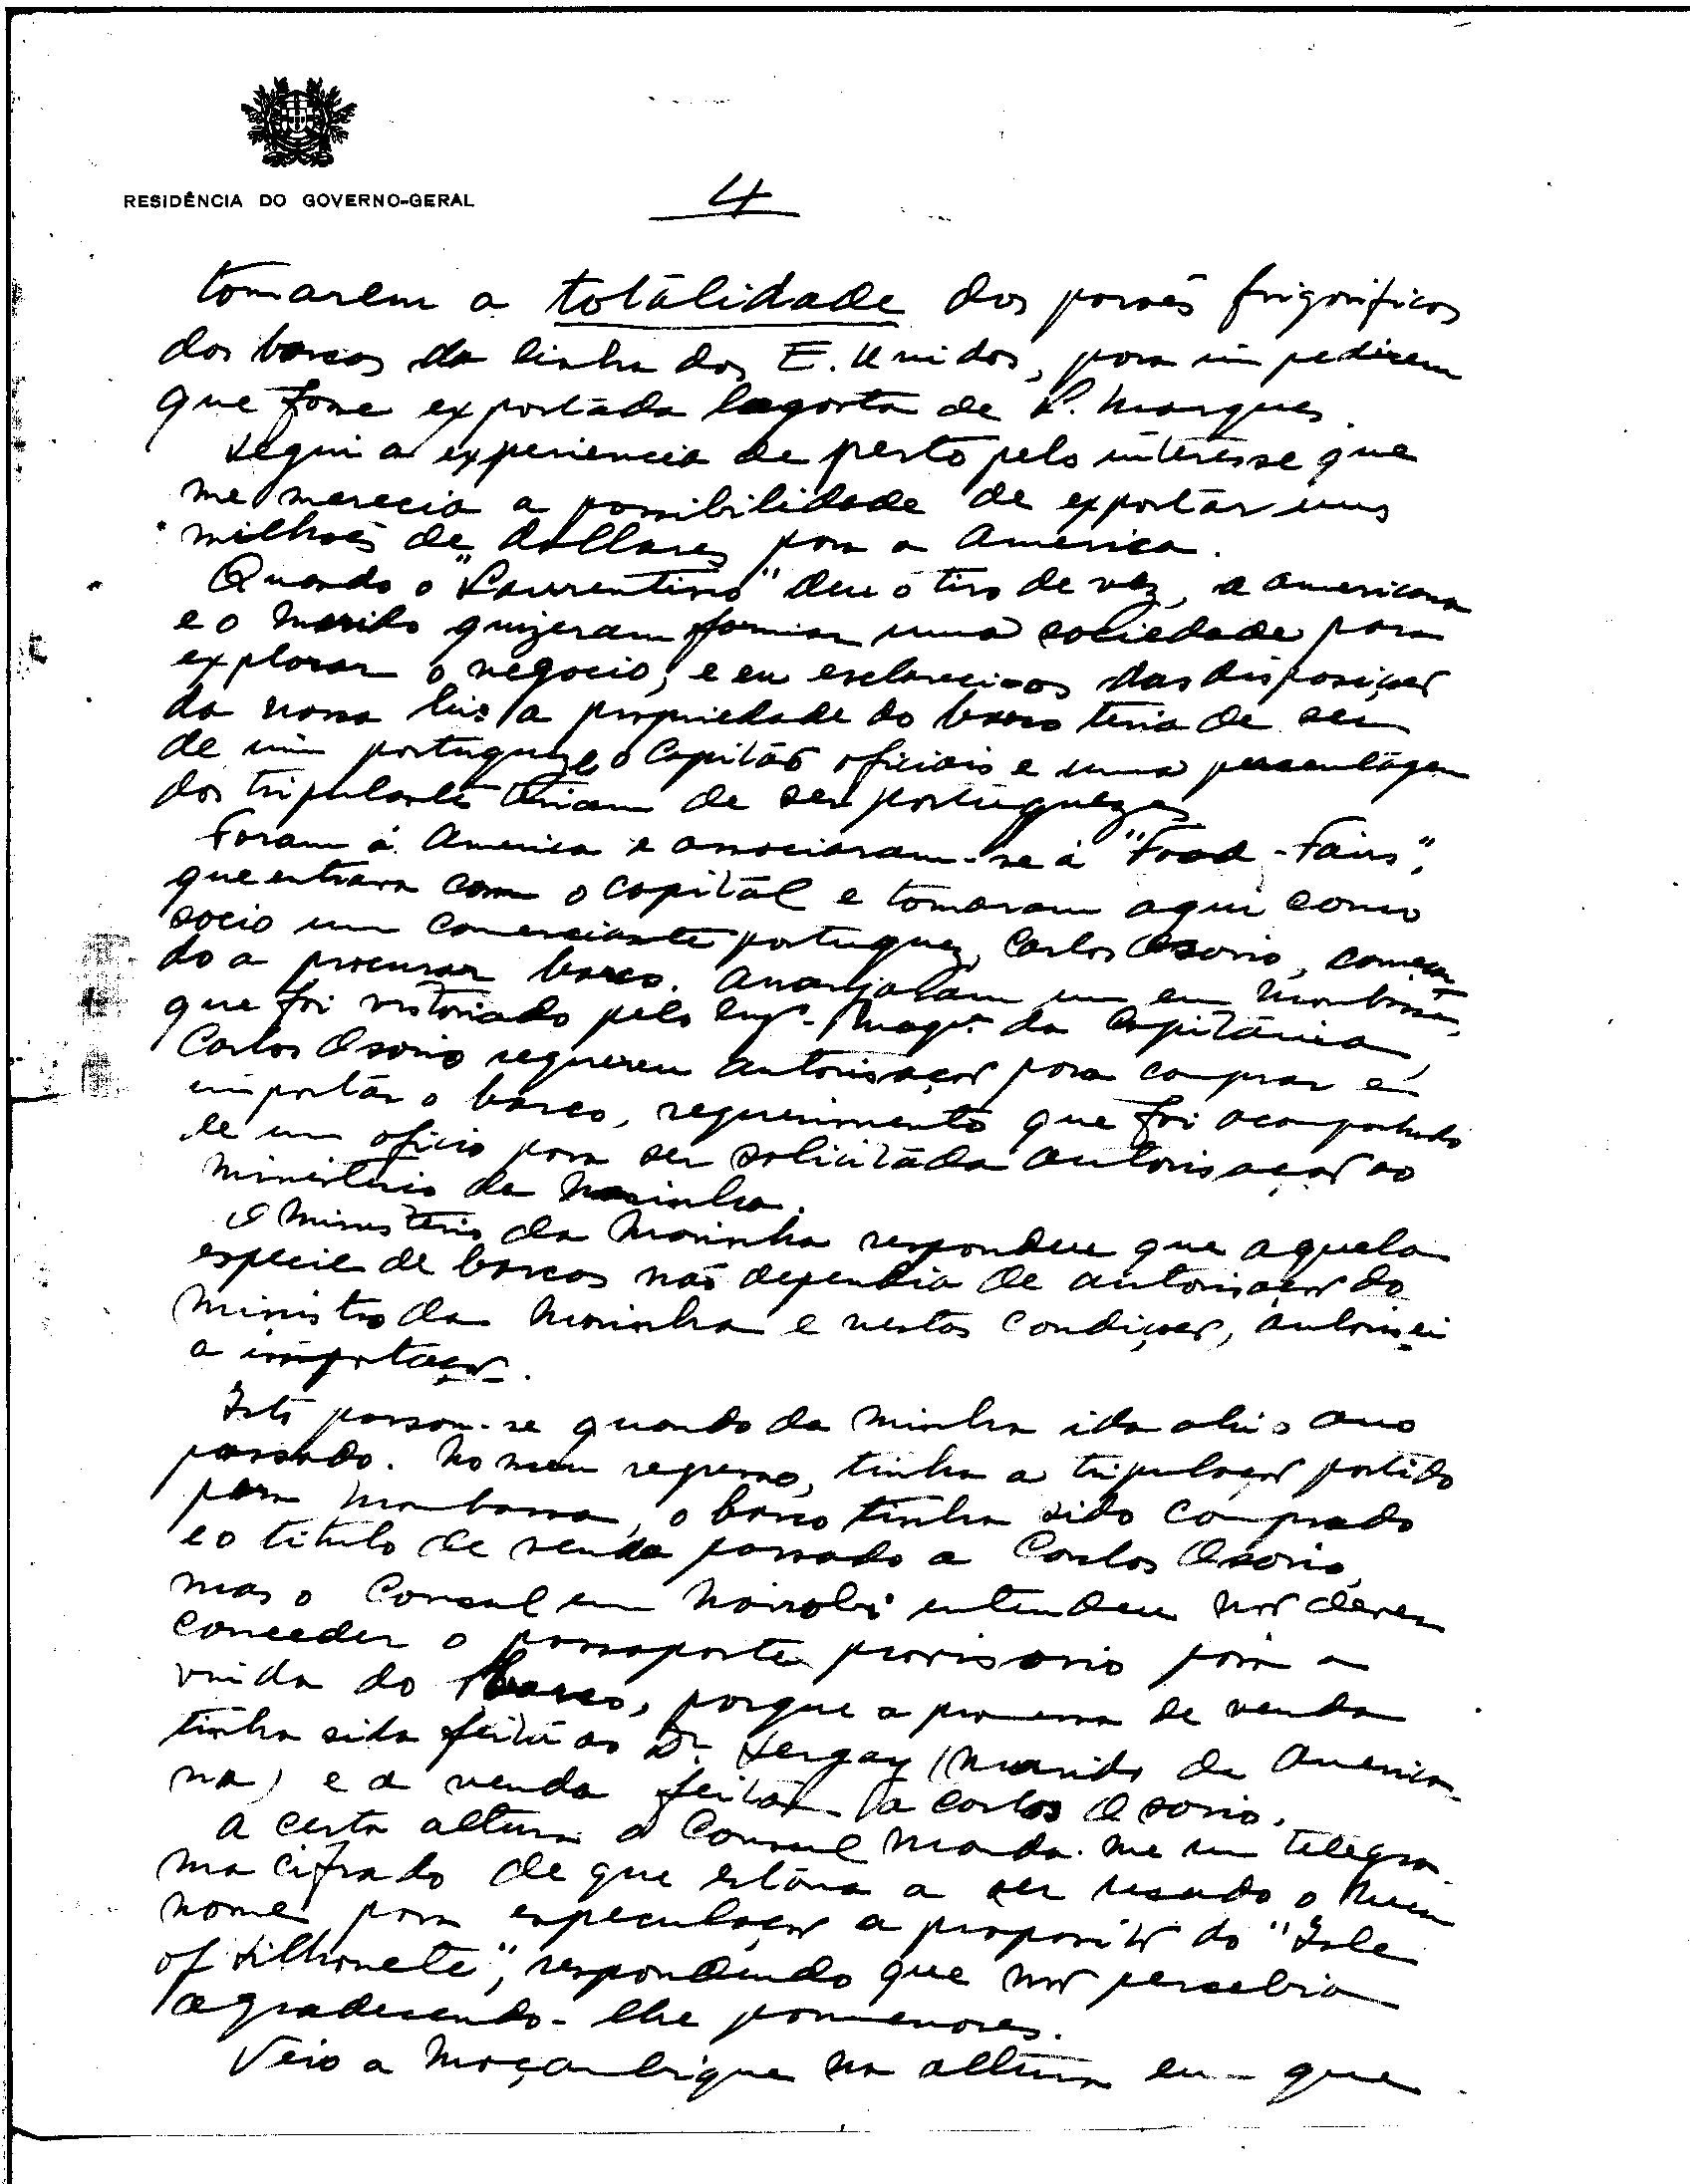 RESIDÊNCIA DO GOVERNO-GERAL
4
tomarem a totalidade dos porões frigorificos
dos barcos da linha dos E. Unidos, para impedirem
que fosse exportada lagosta de L. Marques.
Segui a experiencia de perto pelo interesse que
me merecia a possibilidade de exportar uns
milhões de dollares para a America.
Quando o "Laurentino" deu o tiro de vez, a americana
e o marido quizeram formar uma sociedade para
explorar o negocio, e eu esclareci-os das disposições
da nossa lei: a propriedade do barco teria de ser
de um portuguez, o capitão oficiais e uma percentagem
dos tripulantes teriam de ser portuguezes.
Foram á America e associaram-se á "Food-Fairs",
que entrara com o capital e tomaram aqui como
socio um comerciante portuguez, Carlos Osorio, começan
do a procurar barco. Arranjaram um em Mombassa,
que foi vistoriado pelo Engº. Maqº. da Capitania
Carlos Osorio requereu autorisação para comprar e
importar o barco, requerimento que foi acompanhado
de um oficio para ser solicitada autorisação ao
Ministerio da Marinha.
O Ministerio da Marinha respondeu que aquela
especie de barcos não dependia de autorisação do
Ministro da Marinha e nestas condições, autorisei
a importação.
Isto passou-se quando da minha ida ahi o ano
passado. No meu regresso, tinha a tripulação partido
para Mombassa, o barco tinha sido comprado
e o titulo de venda passado a Carlos Osorio,
mas o Consul em Nairobi entendeu não dever
conceder o passaporte provisorio para a
vinda do barco, porque a promessa de venda
tinha sido feita ao Dr. Sergay (marido da America
na) e a venda feita a Carlos Osorio.
A certa altura o Consul manda-me um telegra
ma cifrado de que estava a ser usado o meu
nome para especulação a proposito do "Isle
of Silhouete", respondendo que não percebia
agradecendo-lhe pormenores.
Veio a Moçambique na altura em que